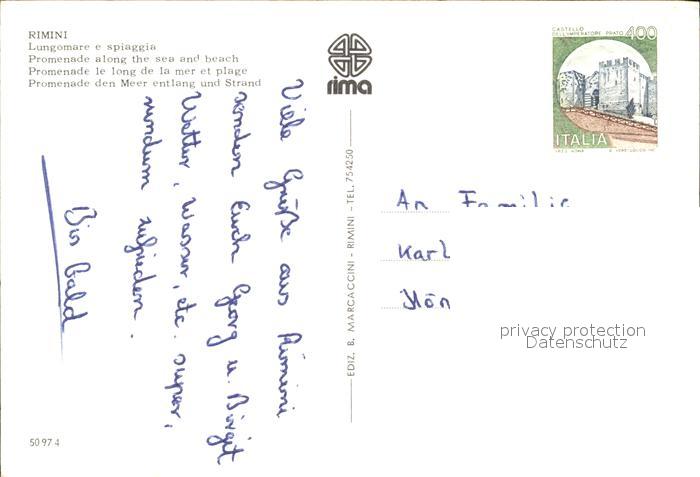 RIMINI
Lungomare e spiaggia
Promenade along the sea and beach
Promenade le long de la mer et plage
Promenade den Meer entlang und Strand
rima
CASTELLO
DELL'IMPERATORE PRATO 400
ITALIA
Viele Grüße aus Rimini
senden Euch Georg u. Birgit
Wetter, Wasser, etc. super,
rundum zufrieden.
Bis bald
EDIZ. B. MARCACCINI - RIMINI - TEL. 754250
An Familie
Karl
privacy protection
Datenschutz
50974